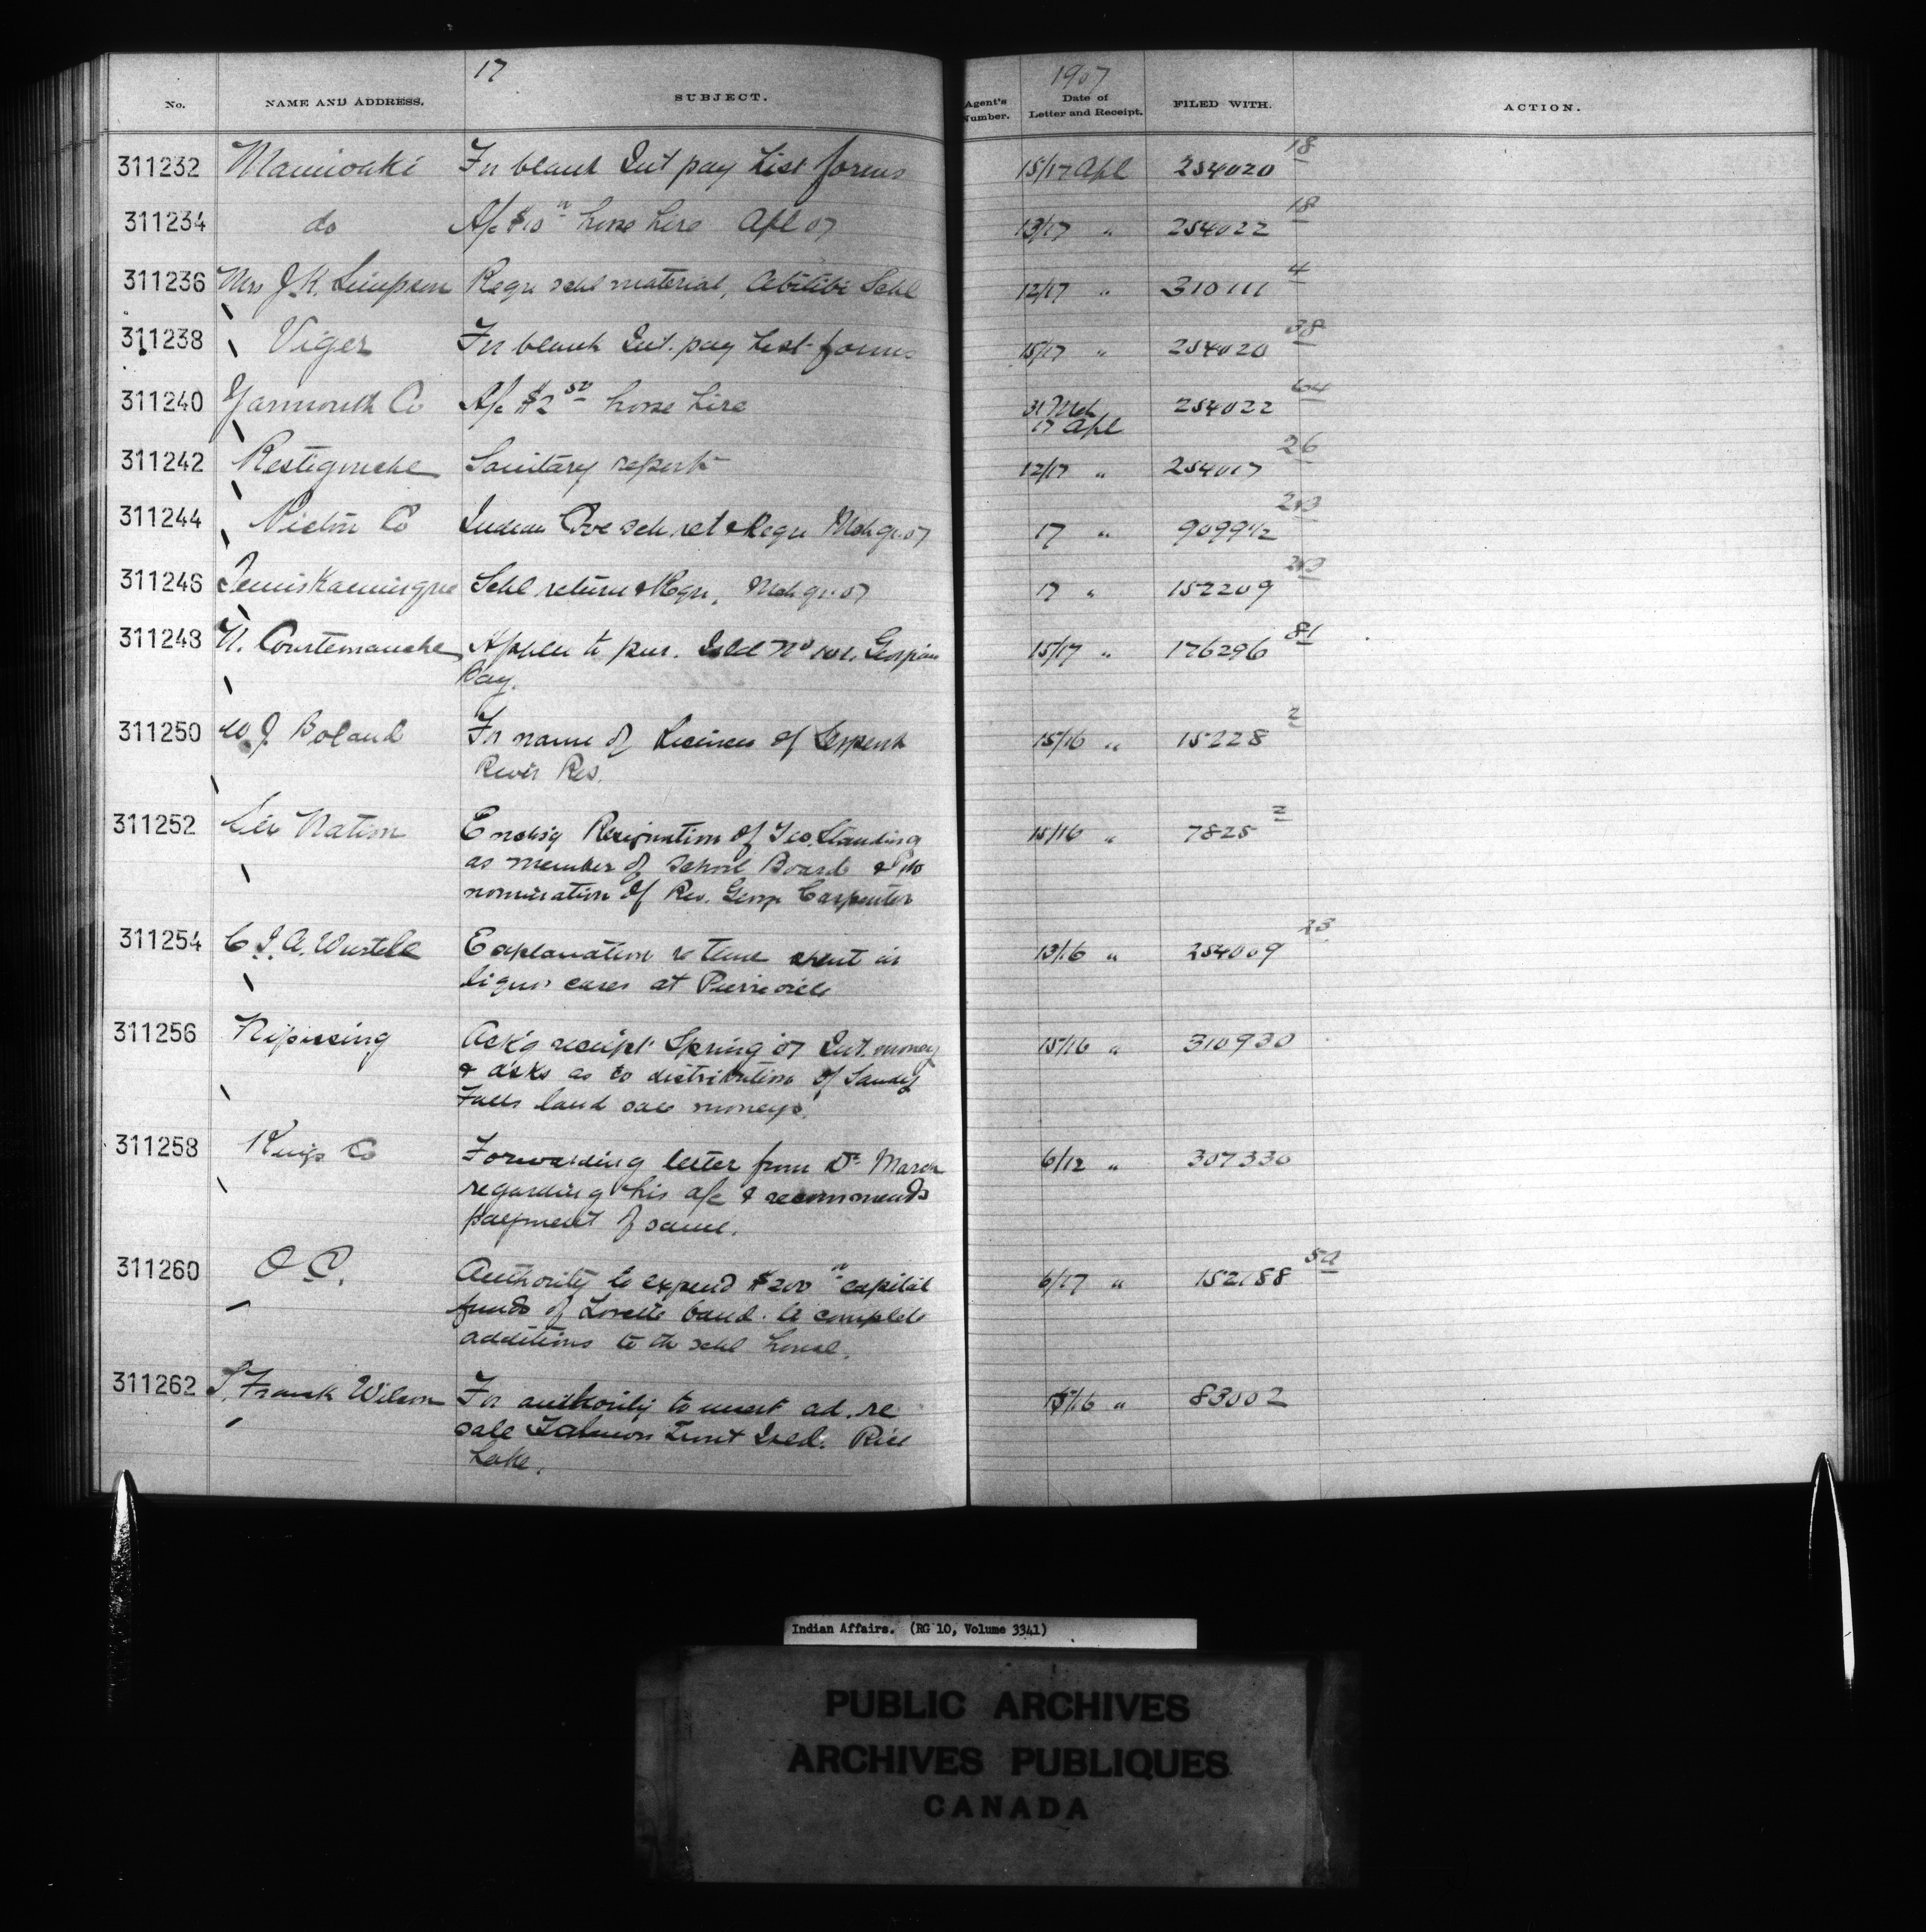 17
1907
No. NAME AND ADDRESS. SUBJECT. Agent's Number. Date of Letter and Receipt. FILED WITH. ACTION.
311232 Maniwaki For blank Int pay List forms 15/17 Apl 254020 18
311234 do A/c $10 horse hire Apl 07 13/17 " 254022 18
311236 Mrs J.K. Simpson Requ schl material, Abitibi Schl 12/17 " 310111 4
311238 Viger For blank Int. pay List forms 15/17 " 254020 38
311240 Yarmouth Co A/c $2 50 horse hire 31 Mch 254022 64
17 Apl
311242 Restigouche Sanitary report 12/17 " 254017 26
311244 Pictou Co Indian Cove sch. ret & Requ Mch qr. 07 17 " 90994
311246 Temiskamingue Schl return & Requ, Mch qr. 07 17 " 157209
311248 Courtemanche Applcn to pur. Isld No Georgian 15/17 " 176296 81
Bay.
311250 W J Boland For name of Licensee of Serpent 15/16 " 15228 2
River Res.
311252 Six Nation Enclosg Resignation of Geo. Standing 15/16 " 7825 2
as member of School Board &
nomination of Rev. George Carpenter
311254 C I. A. Wurtele Explanation re time spent in 13/16 " 254009 23
liquor cases at Pierreville
311256 Nipissing Ack'g receipt Spring 07 Int. money 15/16 " 310930
& asks as to distribution of Sandy
Falls land sale moneys.
311258 Kings Co Forwarding letter from Dr March 6/12 " 307330
regarding his a/c & recommends
payment of same.
311260 O C. Authority to expend $200 capital 6/17 " 152188
funds of Lorette band. to complete
additions to the schl house.
311262 Frank Wilson For authority to insert ad. re 15/16 " 83002
sale Salmon Trout Isld. Rice
Lake.
Indian Affairs. (RG 10, Volume 3341)
PUBLIC ARCHIVES
ARCHIVES PUBLIQUES
CANADA